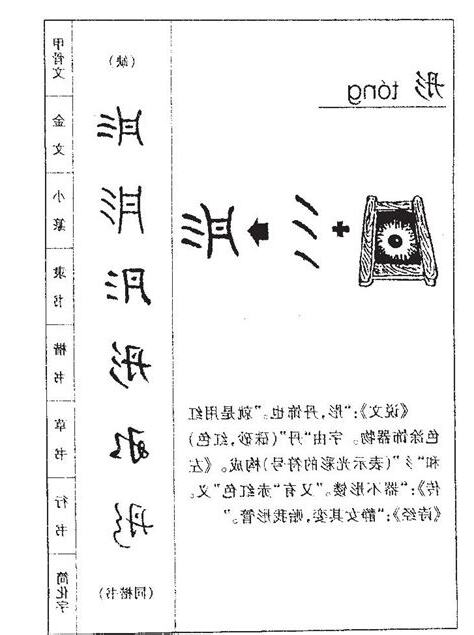 彤 tóng
甲骨文
(缺)
金文
小篆
隶书
楷书
彤
草书
行书
简化字
(同楷书)
《说文》:“彤,丹饰也。”就是用红
色涂饰器物。字由“丹”(硃砂,红色)
和“彡”(表示光彩的符号)构成。《左
传》:“器不彤镂。”又有“赤红色”义。
《诗经》:“静女其娈,贻我彤管。”